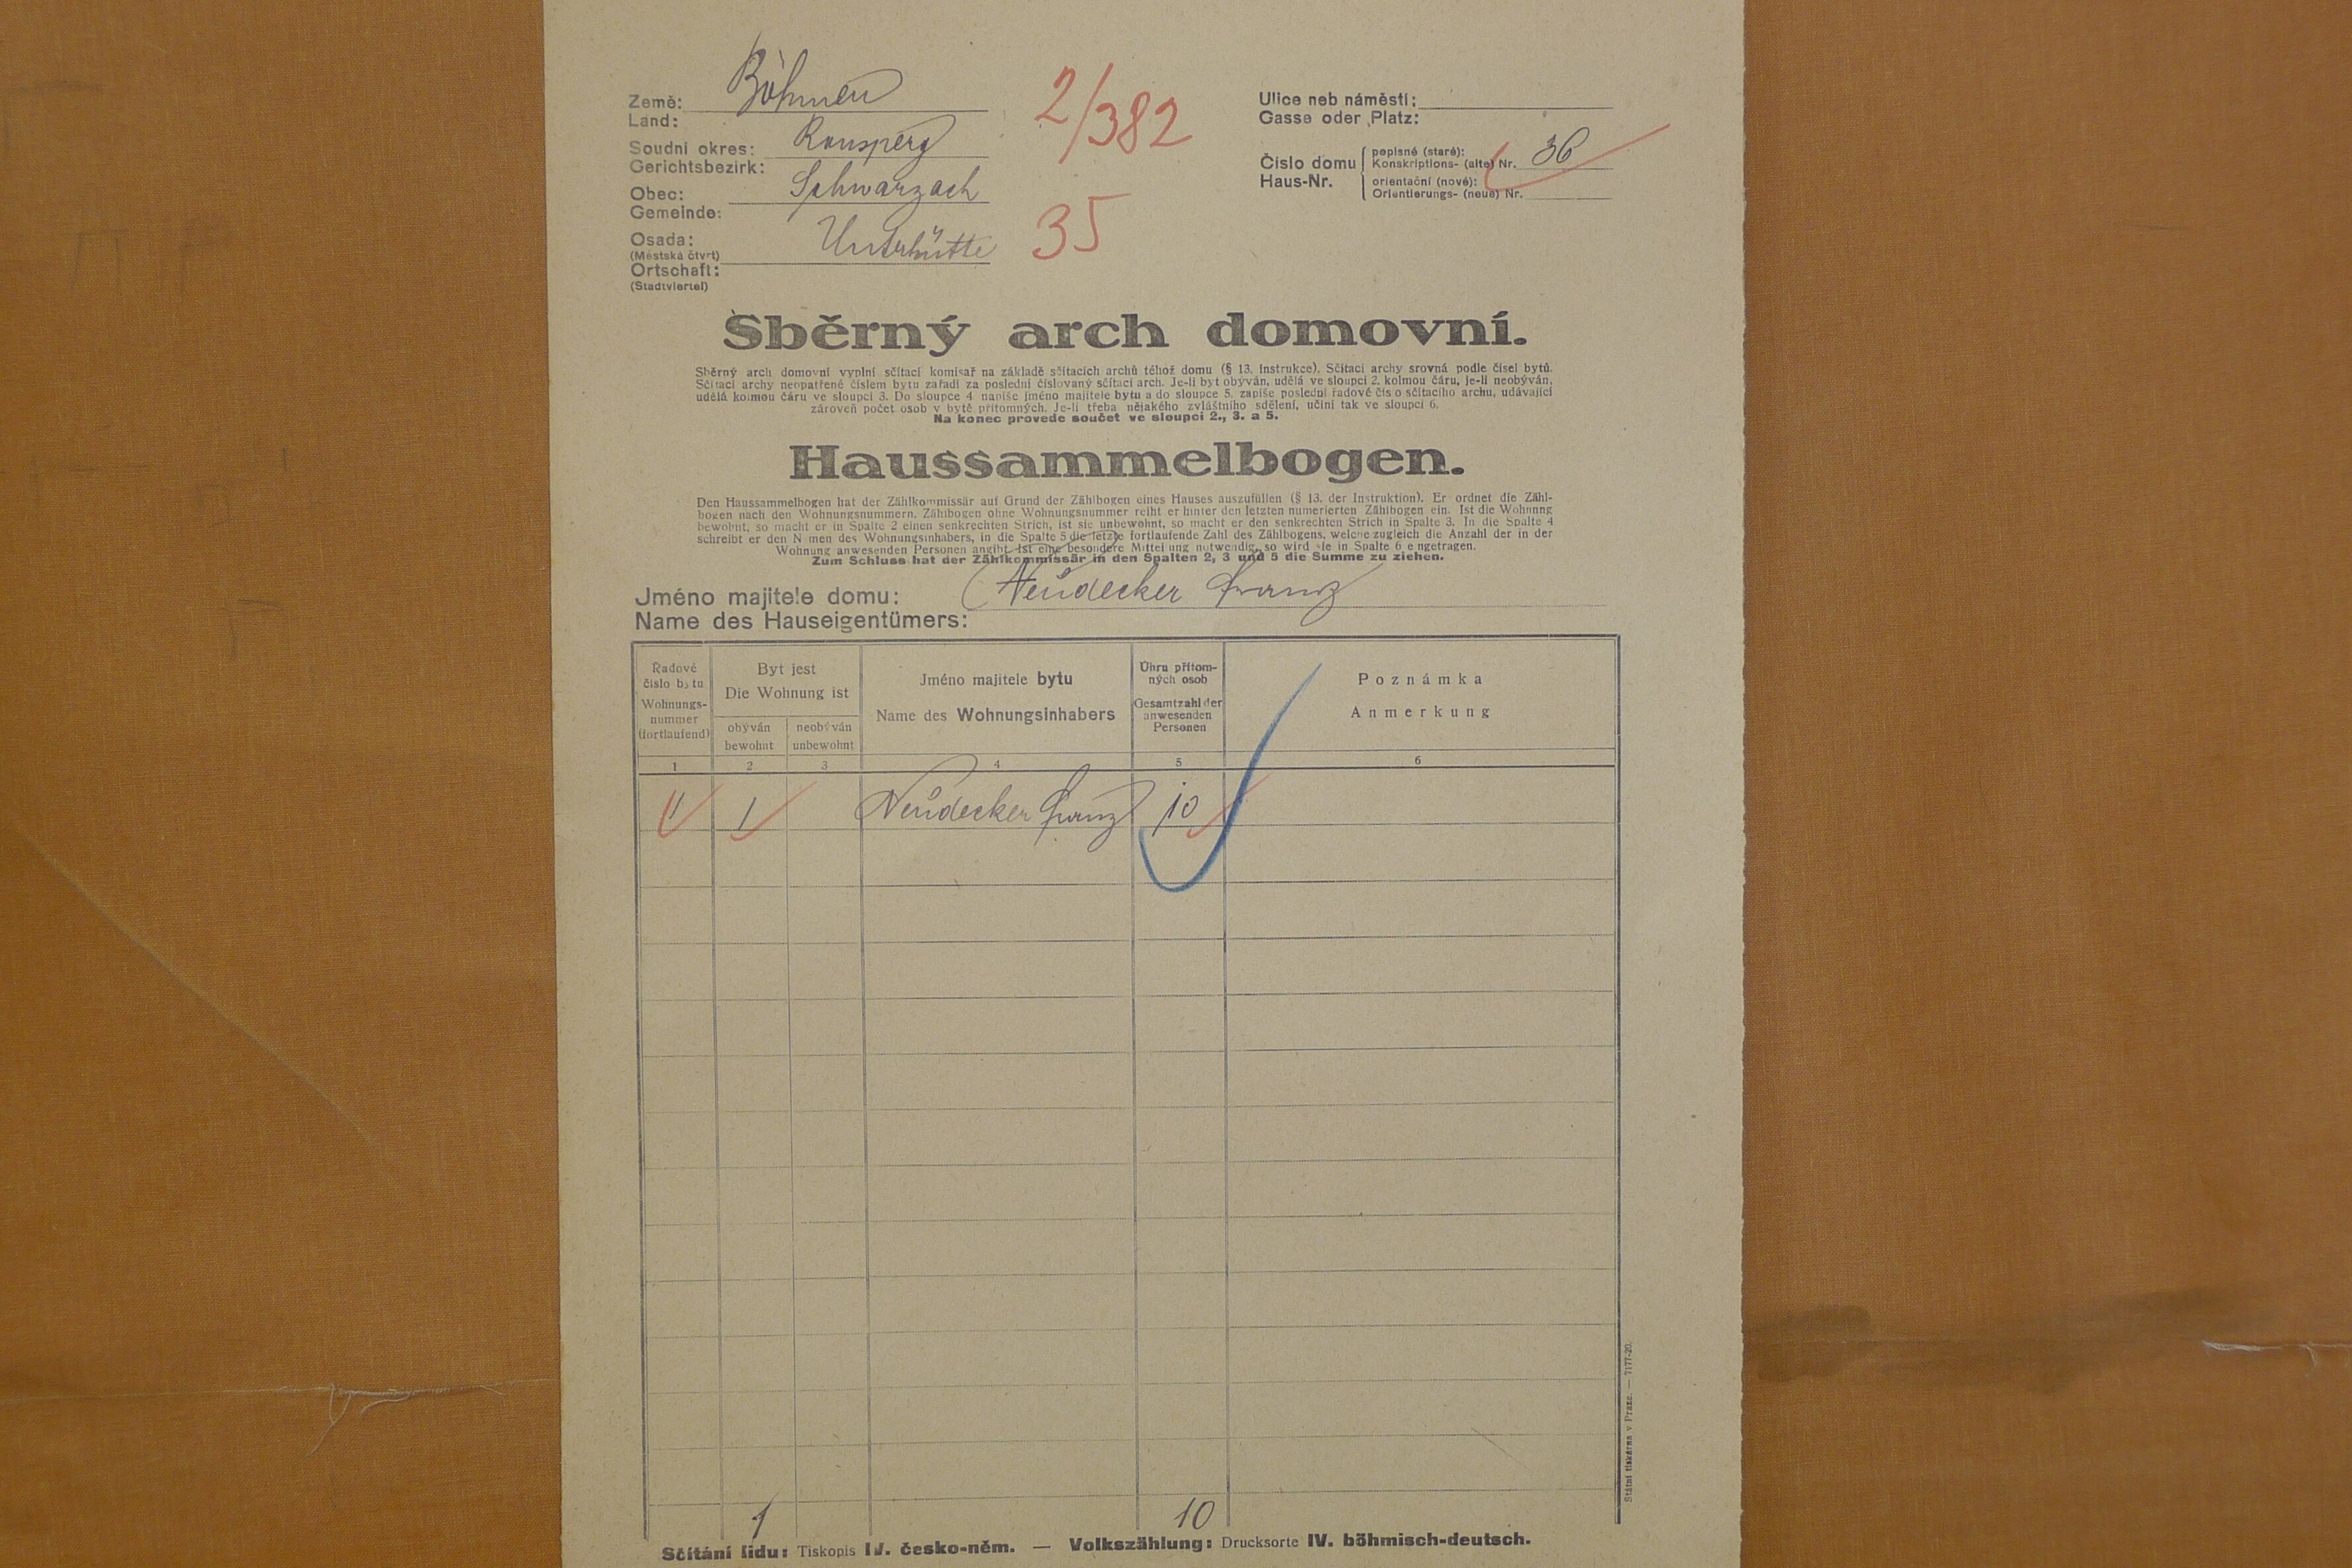 Země: Böhmen
Land:
Soudní okres: Ronsperg
Gerichtsbezirk:
Obec: Schwarzach
Gemeinde:
Osada: Unterhütte
(Městská čtvrt)
Ortschaft:
(Stadtviertel)
2/382
35
Ulice neb náměstí:
Gasse oder Platz:
Číslo domu
Haus-Nr.
popisné (staré):
Konskriptions- (alte) Nr. 36
orientační (nové):
Orientierungs- (neue) Nr.
Sběrný arch domovní.
Sběrný arch domovní vyplní sčítací komisař na základě sčítacích archů téhož domu (§ 13. instrukce). Sčítací archy srovná podle čísel bytů.
Sčítací archy neopatřené číslem bytu zařadí za poslední číslovaný sčítací arch. Je-li byt obýván, udělá ve sloupci 2. kolmou čáru, je-li neobýván,
udělá kolmou čáru ve sloupci 3. Do sloupce 4 napíše jméno majitele bytu a do sloupce 5. zapíše poslední řadové čís o sčítacího archu, udávající
zároveň počet osob v bytě přítomných. Je-li třeba nějakého zvláštního sdělení, učiní tak ve sloupci 6.
Na konec provede součet ve sloupci 2., 3. a 5.
Haussammelbogen.
Den Haussammelbogen hat der Zählkommissär auf Grund der Zählbogen eines Hauses auszufüllen (§ 13. der Instruktion). Er ordnet die Zähl-
bogen nach den Wohnungsnummern. Zählbogen ohne Wohnungsnummer reiht er hinter den letzten numerierten Zählbogen ein. Ist die Wohnung
bewohnt, so macht er in Spalte 2 einen senkrechten Strich, ist sie unbewohnt, so macht er den senkrechten Strich in Spalte 3. In die Spalte 4
schreibt er den N men des Wohnungsinhabers, in die Spalte 5 die letzte fortlaufende Zahl des Zählbogens, welche zugleich die Anzahl der in der
Wohnung anwesenden Personen angibt. Ist eine besondere Mittei ung notwendig, so wird sie in Spalte 6 e ngetragen.
Zum Schluss hat der Zählkommissär in den Spalten 2, 3 und 5 die Summe zu ziehen.
Jméno majitele domu: Neudecker Franz
Name des Hauseigentümers:
Řadové číslo bytu
Wohnungs-nummer (fortlaufend)
Byt jest
Die Wohnung ist
obýván
bewohnt
neobýván
unbewohnt
Jméno majitele bytu
Name des Wohnungsinhabers
Úhrn přítom-ných osob
Gesamtzahl der anwesenden Personen
Poznámka
Anmerkung
1 2 3 4 5 6
1 1 Neudecker Franz 10
1 10
Sčítání lidu: Tiskopis IV. česko-něm. — Volkszählung: Drucksorte IV. böhmisch-deutsch.
Státní tiskárna v Praze. — 7177-20.